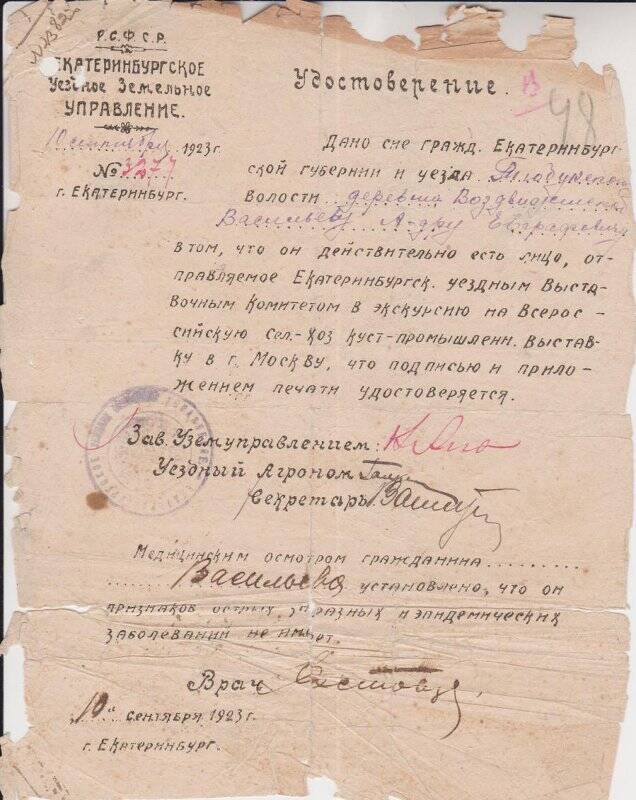 Р.С.Ф.С.Р.
ЕКАТЕРИНБУРГСКОЕ
Уездное Земельное
УПРАВЛЕНИЕ.
10 сентября 1923г.
№ 3277
г. ЕКАТЕРИНБУРГ.
Удостоверение.
48
Дано сие гражд. Екатеринбург-
ской губернии и уезда
Волости деревни
Васильеву А-дру
в том, что он действительно есть лицо, от-
правляемое Екатеринбургск. уездным Выста-
вочным Комитетом в экскурсию на Всерос-
сийскую Сел.-Хоз Куст-промышленн. Выстав-
ку в г. Москву, что подписью и прило-
жением печати удостоверяется.
Зав. Уземуправлением:
Уездный Агроном
Секретарь
Медицинским осмотром гражданина..........
...... Васильева установлено, что он
признаков острых, заразных и эпидемических
заболеваний не имеет.
Врач
"10" сентября 1923 г.
г. Екатеринбург.